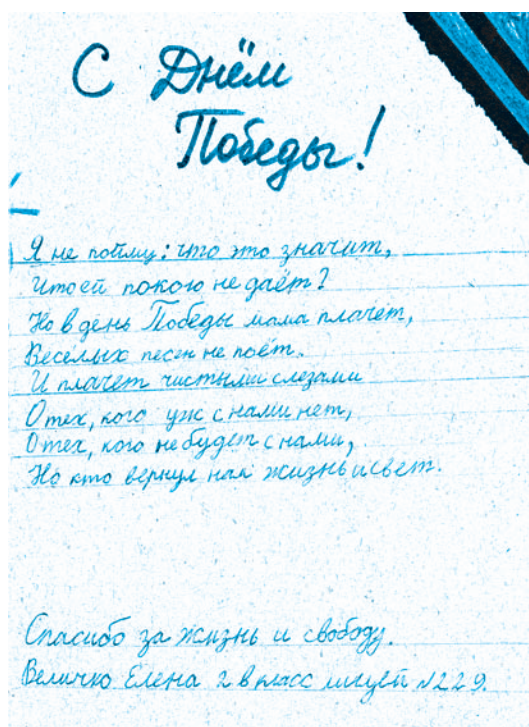 С Днём
Победы!
Я не пойму: что это значит,
Что ей покою не даёт?
Но в день Победы мама плачет,
Веселых песен не поёт.
И плачет чистыми слезами
О тех, кого уж с нами нет,
О тех, кого не будет с нами,
Но кто вернул нам жизнь и свет.
Спасибо за жизнь и свободу.
Величко Елена 2 в класс лицей №229.